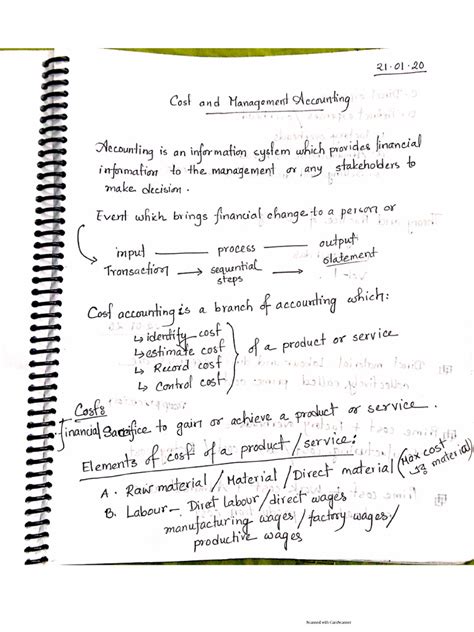 21.01.20
Cost and Management Accounting
Accounting is an information system which provides financial
information to the management or any stakeholders to
make decision.
Event which brings financial change to a person or
input — process — output
Transaction → sequential steps → statement
Cost accounting is a branch of accounting which:
↳ identify cost
↳ estimate cost
↳ Record cost
↳ Control cost
of a product or service
Costs:
Financial Sacrifice to gain or achieve a product or service.
Elements of cost of a product/service:
A. Raw material / Material / Direct material (Max cost material)
B. Labour – Diret labour/direct wages
manufacturing wages / factory wages/
productive wages
Scanned with CamScanner